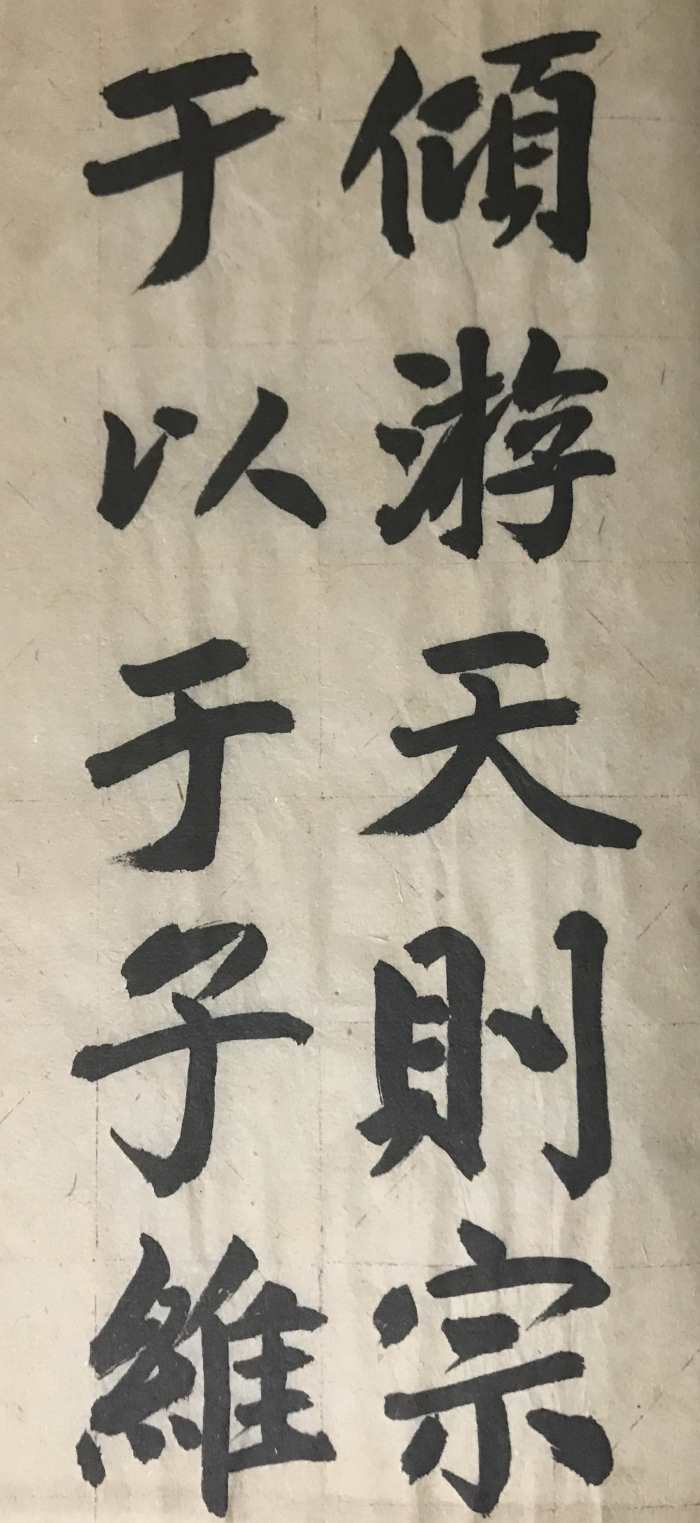 傾游天則宗
于以于子維